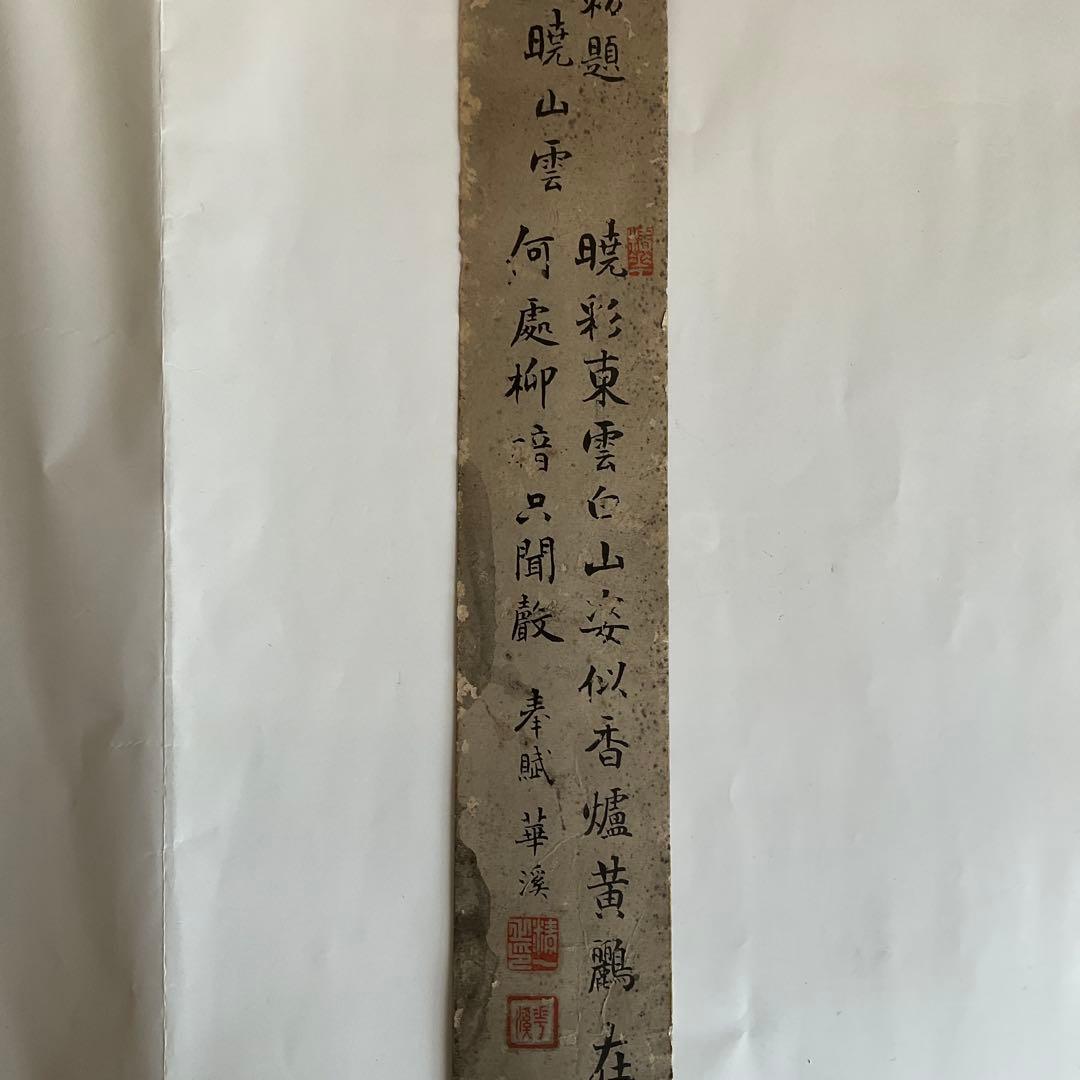 勅題
曉山雲
曉彩東雲白山姿似香爐黄鸝在
何處柳暗只聞聲
奉賦 華溪
華溪